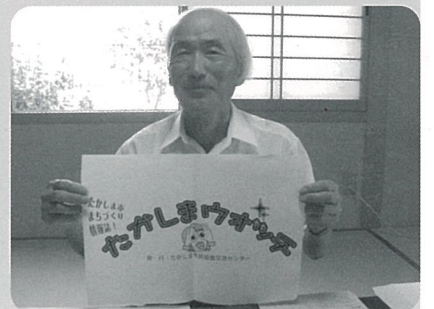 たかしま市
まちづくり
情報誌！
たかしまウオッチ
発 行：たかしま市民協働交流センター